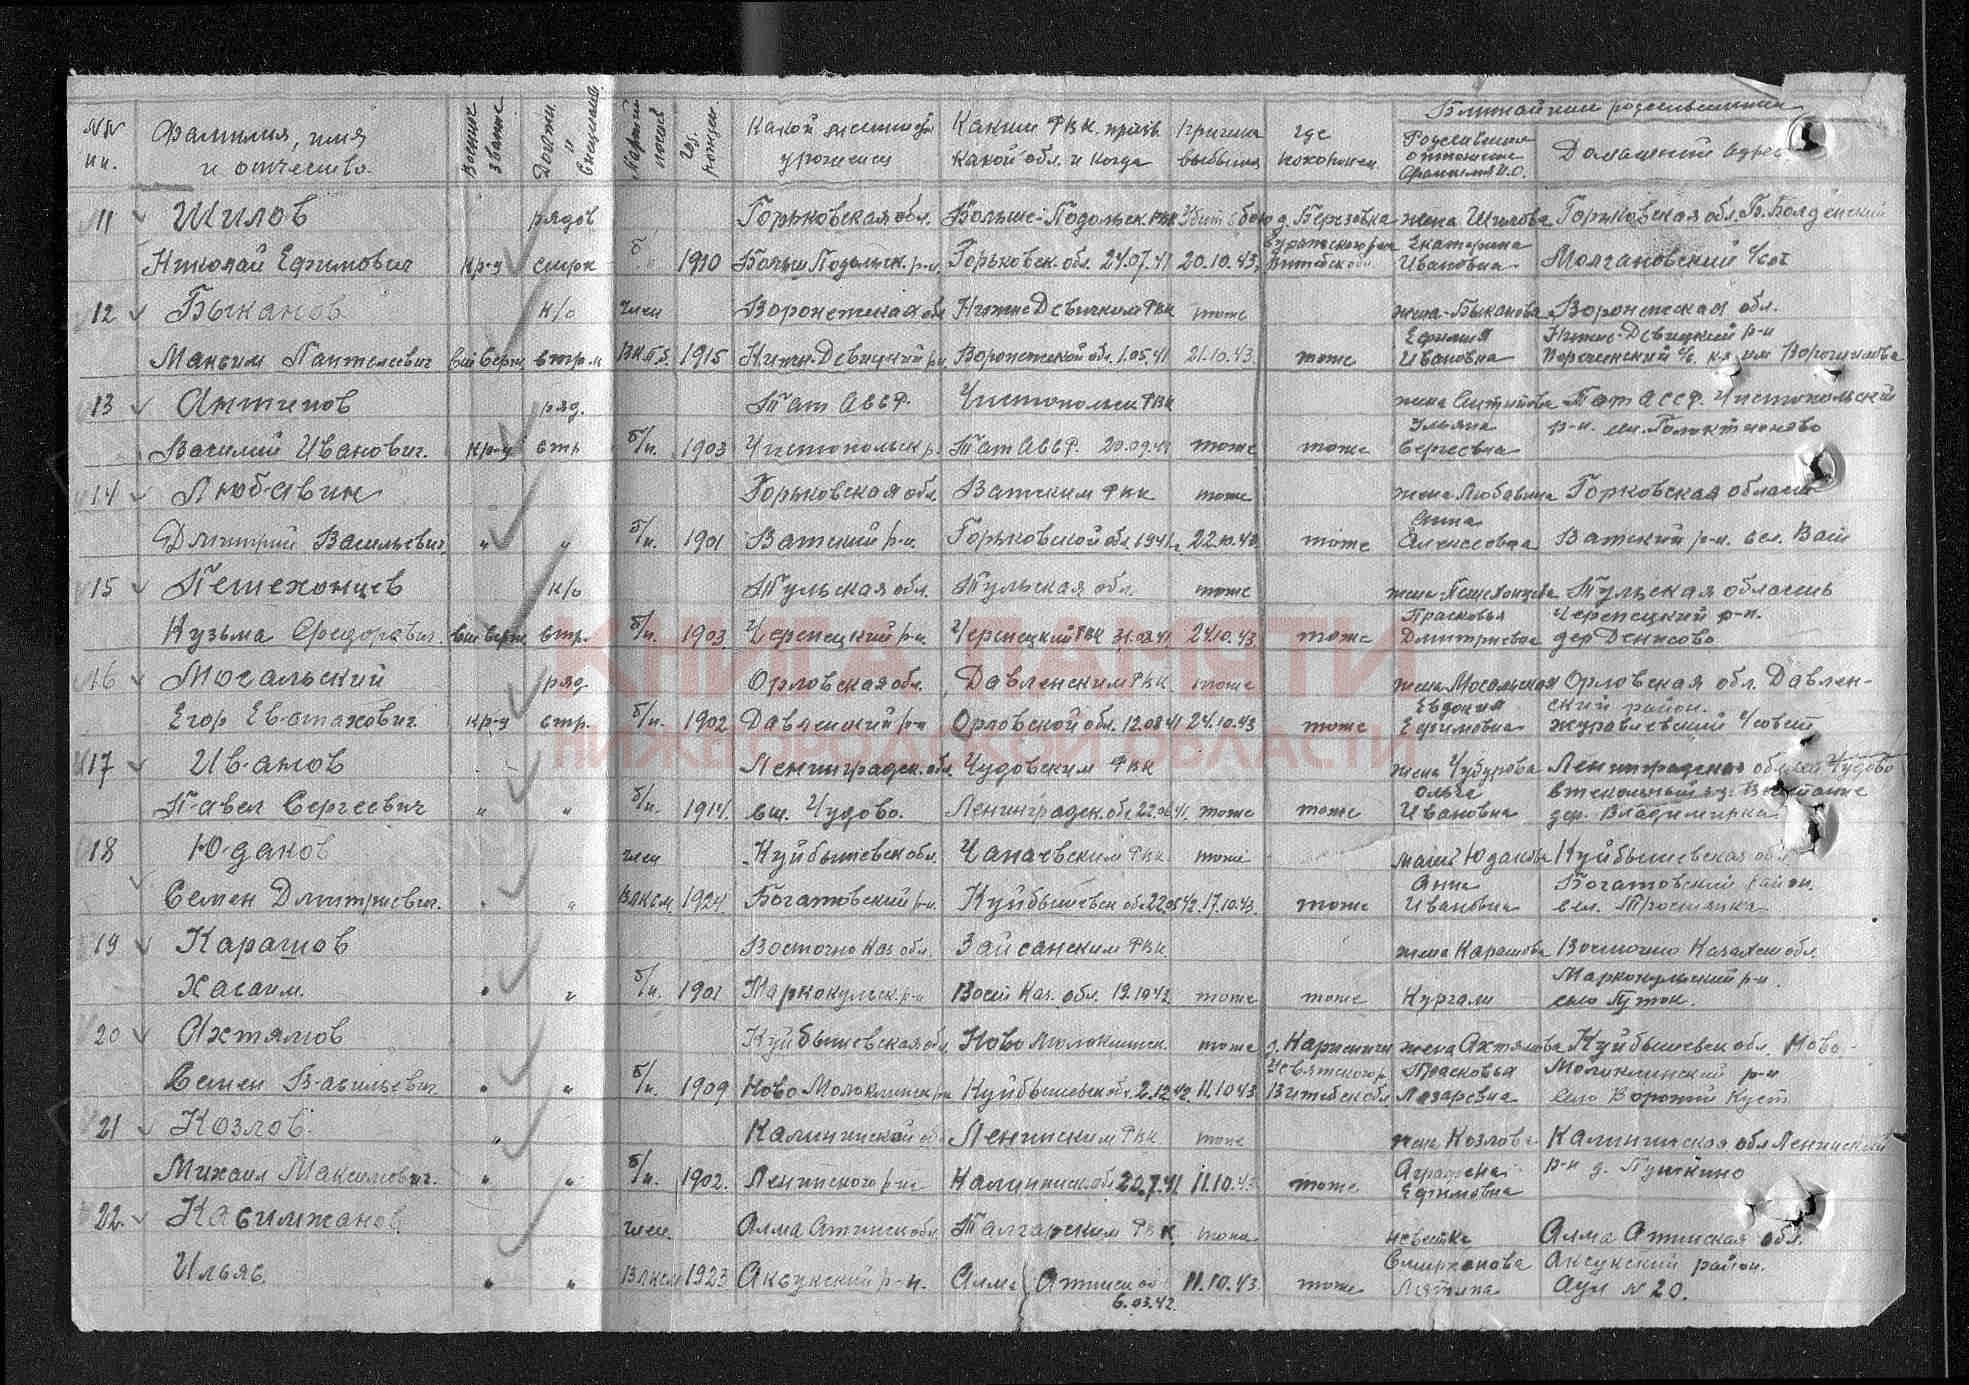 NN пп. Фамилия, имя и отчество. Военное звание Должн. и специальн. Партийность Год рожден. Какой местности уроженец Каким РВК призв. какой обл. и когда Причина выбытия где похоронен Ближайшие родственники
Домашний адрес
11 Шилов рядов Горьковская обл. Больше-Подольск. РВК Убит в бою д. Березовка жена Шилова Горьковская обл. Б. Болденский
Николай Ефимович кр-ц стрк 1910 Больш Подольск. р-н. Горьковск. обл. 24.07.41 20.10.43. Екатерина Ивановна Молчановский с/сов
12 Быканов к/о член Воронежская обл Нижне Девичким РВК тоже жена-Быканова Воронежская обл.
Максим Пантелеевич стр. ВКПб. 1915 Нижн-Девицкий р-н. Воронежской обл. 1.05.41 21.10.43. тоже Ефимия Ивановна Нижне-Девицкий р-н
13 Антипов ряд. Тат АССР. Чистопольск РВК жена Антипова Тат АССР. Чистопольский
Василий Иванович. кр-ц стр б/п. 1903 Чистопольск р. Тат АССР. тоже тоже Ульяна Сергеевна р-н.
14 Любавин Горьковская обл. Вачским РВК тоже жена Любавина Горковская область
Дмитрий Васильевич " " б/п. 1901 Вачский р-н. Горьковской обл. 1941г. тоже Анна Алексеевна Вачский р-н. сел. Вач
15 Пешехонцев к/о Тульская обл. Тульская обл. тоже жена Пешехонцева Тульская область
Кузьма Федорович. стр. б/п. 1903. Черепецкий р-н. Черепецкий РВК 24.10.43. тоже Прасковья Дмитриевна Черепецкий р-н. дер Денисово
16 Мосальский ряд. Орловская обл. РВК тоже жена Мосальская Орловская обл.
Егор Евстахович. кр-ц стр. б/п. 1902 Орловской обл. 12.08.41 24.10.43 тоже Евдокия Ефимовна ский район.
17 Иванов Ленинградск. обл. Чудовским РВК жена Чубурова Ленинградская обл
Павел Сергеевич " " б/п. 1914. ст. Чудово. Ленинградск. обл. тоже тоже Ольга Ивановна дер. Владимирка
18 Юданов член Куйбышевск обл. Чапаевским РВК тоже мать Юданова Куйбышевская обл
Семен Дмитриевич. " " ВЛКСМ. 1924. Богатовский р-н. Куйбышевск обл. 17.10.43. тоже Анна Ивановна Богатовский район. сел. Тростянка
19 Карашов Восточно Каз обл. Зайсанским РВК жена Карашова Восточно Казахск обл.
Хасаим. " " б/п. 1901 Маркокульск. р-н Вост Каз. обл. тоже тоже Кургали Маркокульский р-н
20 Ахтямов Куйбышевская обл. Ново Малоклинск. тоже жена Ахтямова Куйбышевск обл. Ново-
Семен Васильевич. " " б/п. 1909 Ново Малоклинск р-н Куйбышевск обл. 2.12.42. 11.10.43 Витебск обл. Прасковья Лазаревна Малоклинский р-н село Вороний Куст
21 Козлов. Калининской об Ленинским РВК тоже жена Козлова Калининская обл Ленинский
Михаил Максимович. " " б/п. 1902. Ленинского р-на Калининск об 11.10.43 тоже Аграфена Ефимовна р-н д. Пушкино
22. Касимжанов. член. Алма Атинск обл. Талгарским РВК. тоже невестка Алма Атинская обл.
Ильяс. " " ВЛКСМ 1923 Аксукский р-н. Алма Атинск об 6.03.42. 11.10.43. тоже Аксукский район. Аул N 20.
КНИГА ПАМЯТИ
НИЖЕГОРОДСКОЙ ОБЛАСТИ